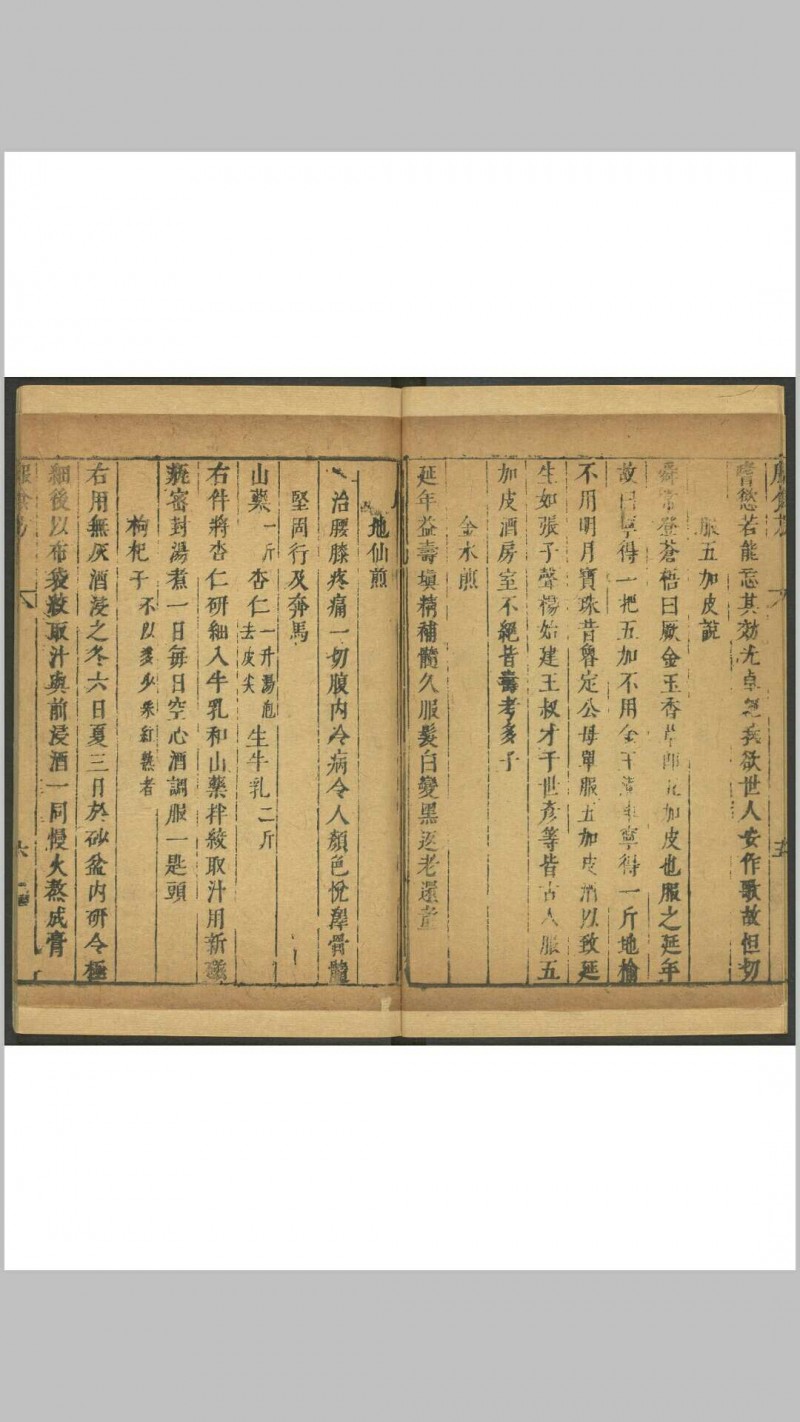 嗜慾若能忘其効尤卓
我欲世人安作歌故怛切
服五加皮說
舜常登蒼梧曰厥金玉香草即五加皮也服之延年
故曰寧得一把五加不用金玉滿車寧得一斤地榆
不用明月寶珠昔魯定公母單服五加皮酒以致延
生如張子聲楊始建王叔才于世彥等皆古人服五
加皮酒房室不絕皆壽考多子
金水煎
延年益壽塡精補髓久服髮白變黑返老還童
地仙煎
治腰膝疼痛一切腹內冷病令人顏色悅澤骨髓
堅固行及奔馬
山藥一斤 杏仁一升湯泡去皮尖 生牛乳二斤
右件將杏仁研細入牛乳和山藥拌絞取汁用新磁
瓶密封湯煮一日每日空心酒調服一匙頭
枸杞子不以多少采紅熟者
右用無灰酒浸之冬六日夏三日於砂盆內研令極
細後以布袋絞取汁與前浸酒一同慢火熬成膏
六